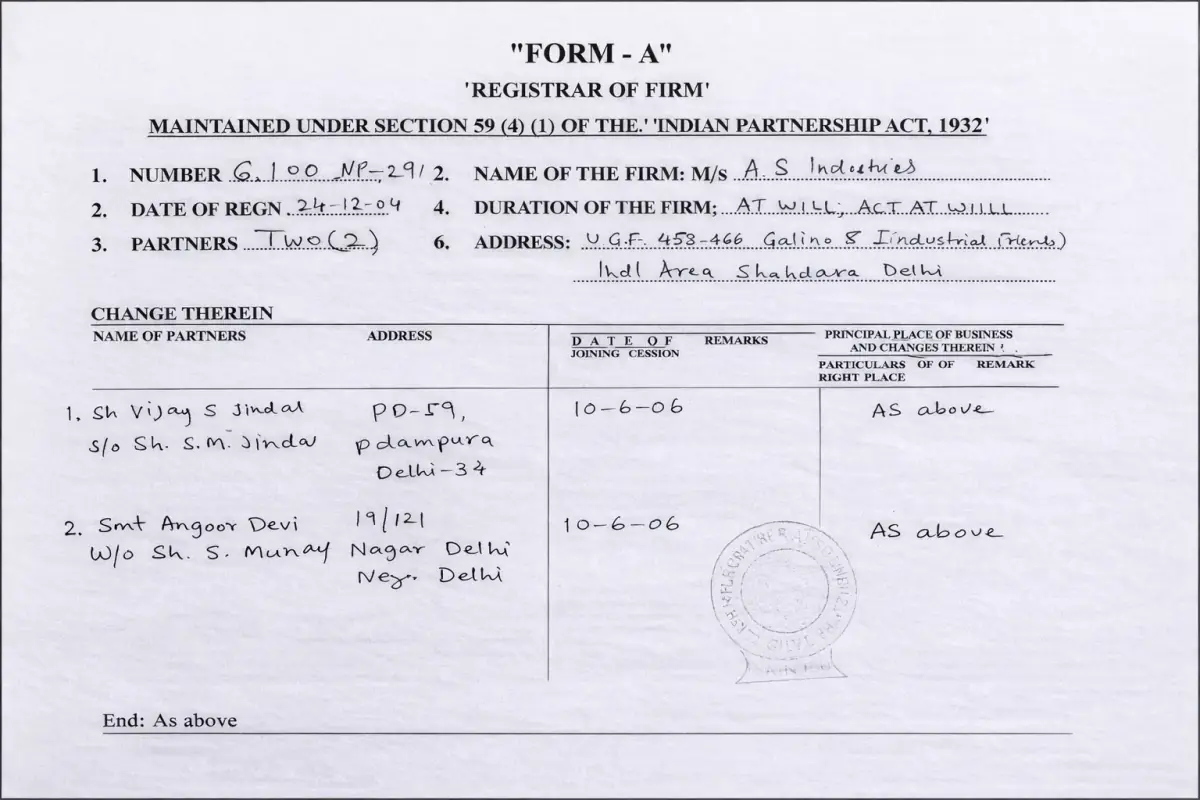 "FORM - A"
'REGISTRAR OF FIRM'
MAINTAINED UNDER SECTION 59 (4) (1) OF THE.' 'INDIAN PARTNERSHIP ACT, 1932'
1. NUMBER 6.100 NP-291 2. NAME OF THE FIRM: M/s A. S Industries
2. DATE OF REGN. 24-12-04 4. DURATION OF THE FIRM; AT WILL; ACT AT WIILL
3. PARTNERS TWO (2) 6. ADDRESS: U.G.F. 458-466 Galino 8 Iindustrial
Indl Area Shahdara Delhi
CHANGE THEREIN
NAME OF PARTNERS ADDRESS DATE OF REMARKS PRINCIPAL PLACE OF BUSINESS
JOINING CESSION AND CHANGES THEREIN
PARTICULARS OF OF REMARK
RIGHT PLACE
1. Sh Vijay S Jindal PD-59, 10-6-06 AS above
s/o Sh. S.M. Jindal pdampura
Delhi-34
2. Smt Angoor Devi 19/121 10-6-06 AS above
W/o Sh. S. Munay Nagar Delhi
Delhi
End: As above